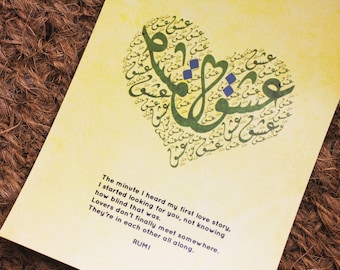 عشق
The minute I heard my first love story,
I started looking for you, not knowing
how blind that was.
Lovers don't finally meet somewhere.
They're in each other all along.
RUMI